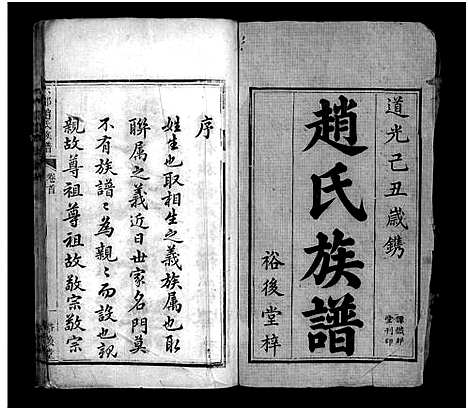 道光己丑歲鐫
趙氏族譜
裕後堂梓
序
姓生也取相生之義族属也取
聯属之義近日世家名門莫
不有族譜譜為親親而設也親
親故尊祖尊祖故敬宗敬宗
趙氏族譜
卷首
一
裕後堂